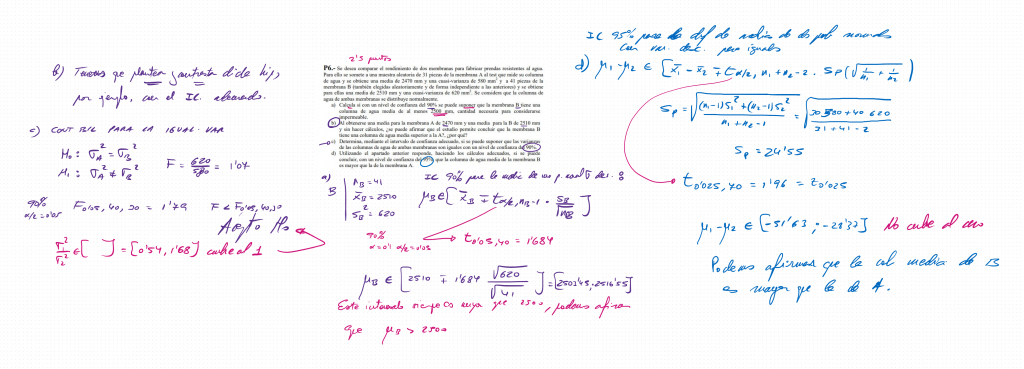 2'5 puntos
P6.- Se desea comparar el rendimiento de dos membranas para fabricar prendas resistentes al agua.
Para ello se somete a una muestra aleatoria de 31 piezas de la membrana A al test que mide su columna
de agua y se obtiene una media de 2478 mm y una cuasi-varianza de 580 mm² y a 41 piezas de la
membrana B (también elegidas aleatoriamente y de forma independiente a las anteriores) y se obtiene
para ellas una media de 2510 mm y una cuasi-varianza de 620 mm². Se considera que la columna de
agua de ambas membranas se distribuye normalmente.
a) Calcula si con un nivel de confianza del 90% se puede suponer que la membrana B tiene una
columna de agua media de al menos 2500 mm, cantidad necesaria para considerarse
impermeable.
b) Al obtenerse una media para la membrana A de 2470 mm y una media para la B de 2510 mm
y sin hacer cálculos, ¿se puede afirmar que el estudio permite concluir que la membrana B
tiene una columna de agua media superior a la A?, ¿por qué?
c) Determina, mediante el intervalo de confianza adecuado, si se puede suponer que las varianzas
de las columnas de agua de ambas membranas son iguales con un nivel de confianza del 90%.
d) Utilizando el apartado anterior responde, haciendo los cálculos adecuados, si se puede
concluir, con un nivel de confianza del 95% que la columna de agua media de la membrana B
es mayor que la de la membrana A.
a)
B
n_B = 41
x̄_B = 2510
S_B² = 620
IC 90% para la media de una p. normal σ des. :
μ_B ∈ [ x̄_B ∓ t_α/2, n_B-1 · S_B/√n_B ]
90%
α=0'1 α/2=0'05
t_0'05, 40 = 1'684
μ_B ∈ [ 2510 ∓ 1'684 √620/√41 ] = [2503'45, 2516'55]
Este intervalo siempre es mayor que 2500, podemos afirmar
que μ_B > 2500
b) Tenemos que plantear contraste de hip,
por ejemplo, con el IC adecuado.
c) CONT BIL PARA LA IGUAL. VAR
H₀ : σ_A² = σ_B²
H₁ : σ_A² ≠ σ_B²
F = 620/580 = 1'07
90%
α/2 = 0'05
F_0'05, 40, 30 = 1'79 F < F_0'05, 40, 30
Acepto H₀
σ₁²/σ₂² ∈ [ ] = [0'54, 1'68] cubre al 1
IC 95% para la dif de medias de dos pob normales
con var. desc. pero iguales
d) μ₁-μ₂ ∈ [ x̄₁ - x̄₂ ∓ t_α/2, n₁+n₂-2 · Sp(√1/n₁ + 1/n₂ )
Sp = √(n₁-1)S₁² + (n₂-1)S₂² / n₁+n₂-2 = √30·580 + 40·620 / 31+41-2
Sp = 24'55
t_0'025, 70 = 1'96 = z_0'025
μ₁-μ₂ ∈ [-51'63 ; -28'37] No cubre el cero
Podemos afirmar que la col media de B
es mayor que la de A.